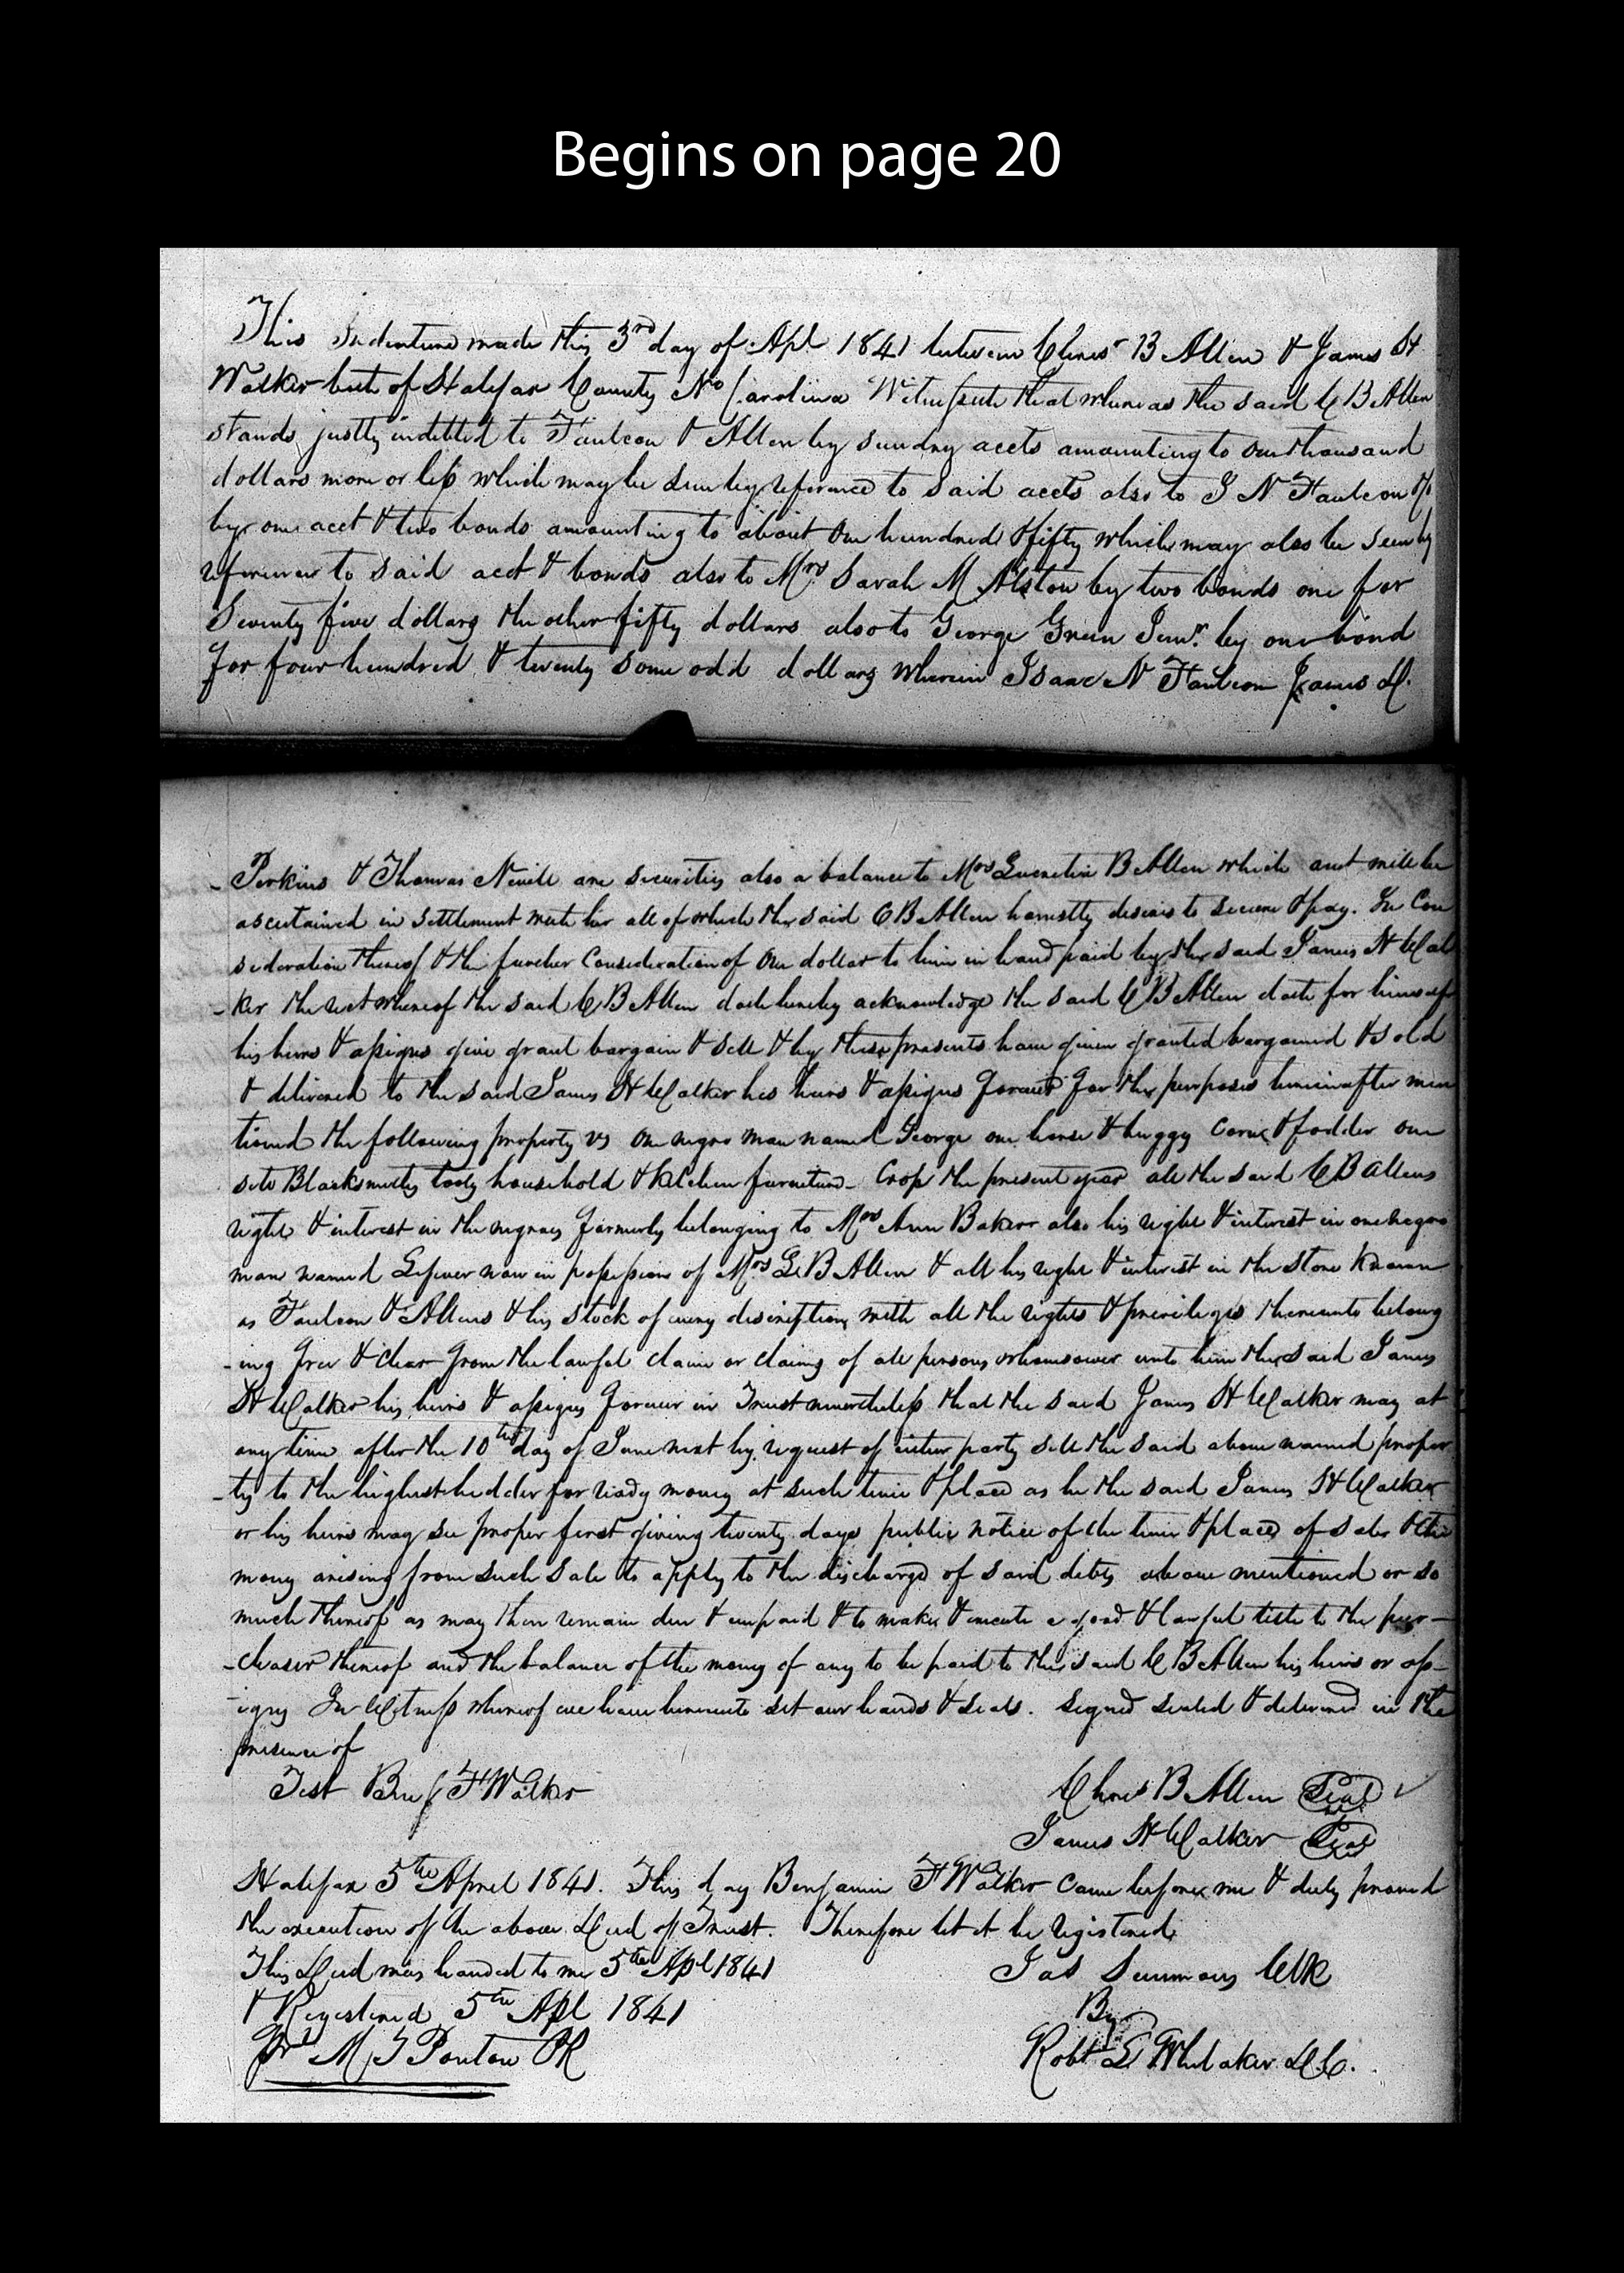 Begins on page 20
This Indenture made this 3rd day of Apl 1841 between Chrisr B Allen & James H
Walker both of Halifax County No Carolina Witnesseth that whereas the said C B Allen
stands justly indebted to Faulcon & Allen by sundry accts amounting to one thousand
dollars more or less which may be seen by reference to said accts also to I N Faulcon
by one acct & two bonds amounting to about one hundred & fifty which may also be seen by
reference to said acct & bonds also to Mrs Sarah M Alston by two bonds one for
Seventy five dollars the other fifty dollars also to George Green Senr. by one bond
for four hundred & twenty some odd dollars wherein Isaac N Faulcon James D.
Perkins & Thomas Nevill are securities also a balance to Mrs Lucretia B Allen which amt will be
ascertained in settlement with her all of which the said C B Allen honestly desires to secure & pay. In Con
sideration thereof & the further Consideration of One dollar to him in hand paid by the said James H Wal
-ker the rect whereof the said C B Allen doth hereby acknowledge the said C B Allen doth for himself
his heirs & assigns give grant bargain & sell & by these presents have given granted bargained & sold
& delivered to the said James H Walker his heirs & assigns forever for the purposes hereinafter men
tioned the following property vs one negro man named George one horse & buggy Corn & fodder one
sete Blacksmiths tools household & kitchen furniture - Crop the present year all the said C B Allens
right & interest in the negroes formerly belonging to Mrs Ann Baker also his right & interest in one negro
man named now in possession of Mrs L B Allen & all his right & interest in the Store Known
as Faulcon & Allens & his stock of every description with all the rights & privileges thereunto belong
-ing free & clear from the lawful claim or claims of all persons whomsoever unto him the said James
H Walker his heirs & assigns forever in Trust nevertheless that the said James H Walker may at
any time after the 10th day of June next by request of either party sell the said above named proper
-ty to the highest bidder for ready money at such time & place as he the said James H Walker
or his heirs may see proper first giving twenty days public notice of the time & place of sale & the
money arising from such Sale to apply to the discharge of said debts above mentioned or so
much thereof as may then remain due & unpaid & to make & execute a good & lawful title to the pur-
-chaser thereof and the balance of the money if any to be paid to the said C B Allen his heirs or ass-
-igns In Witness whereof we have hereunto set our hands & seals. Signed sealed & delivered in the
presence of
Test Benj F Walker
Chris B Allen Seal
James H Walker Seal
Halifax 5th April 1841. This day Benjamin F Walker came before me & duly proved
the execution of the above Deed of Trust. Therefore let it be registered
This Deed was handed to me 5th Apl 1841
Jas Simmons Clk
& Registered 5th Apl 1841
By
Pr M J Ponton PR
Robt L Whitaker D C.